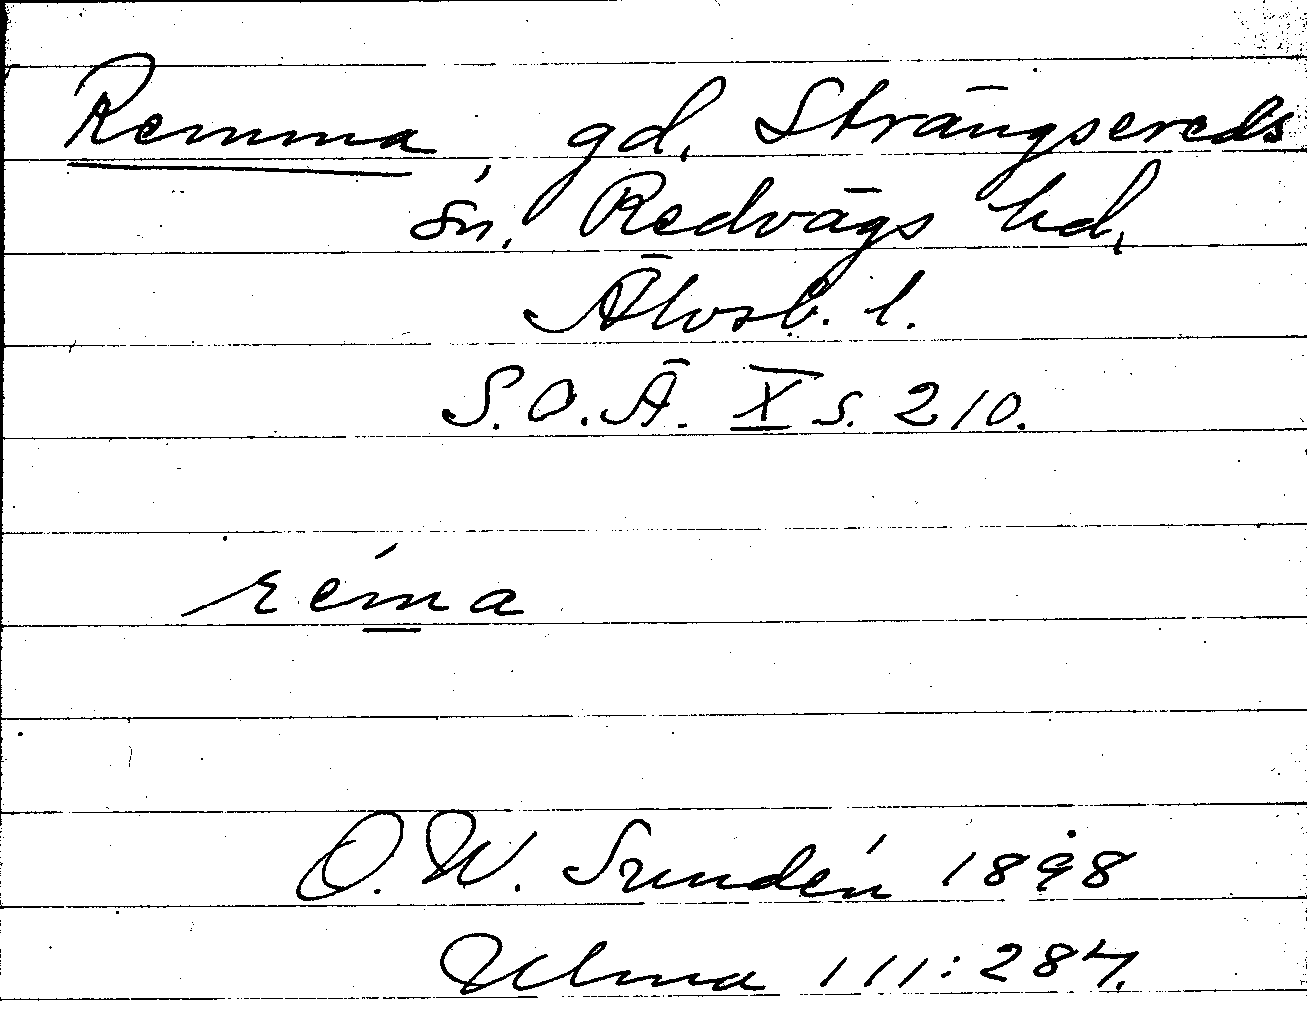 Remma gd, Strängsereds
sn, Redvägs hd,
Älvsb. l.
S.O.Ä. X s. 210.
réma
O.W. Sundén 1898
Ulma 111:287.